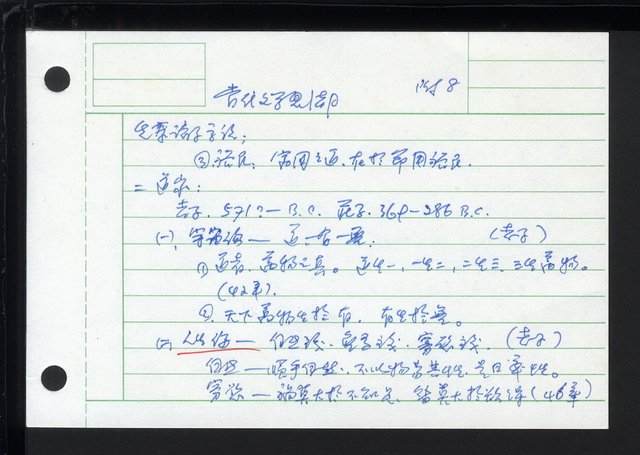 古代文学思想 附8
先秦諸子主流:
③裕民: 富國之道,在於節用裕民.
二 道家:
老子. 571?— B.C. 莊子. 369-286 B.C.
(一). 宇宙論— 道 (老子)
①道者, 萬物之奧。道生一, 一生二, 二生三, 三生萬物。
(42章).
②. 天下萬物生於有, 有生於無。
(二) 人生論— 自然 寡慾主義. (老子)
自然 — 順乎自然, 不以物害其性, 是曰率性。
寡慾 — 禍莫大於不知足, 咎莫大於欲得 (46章)